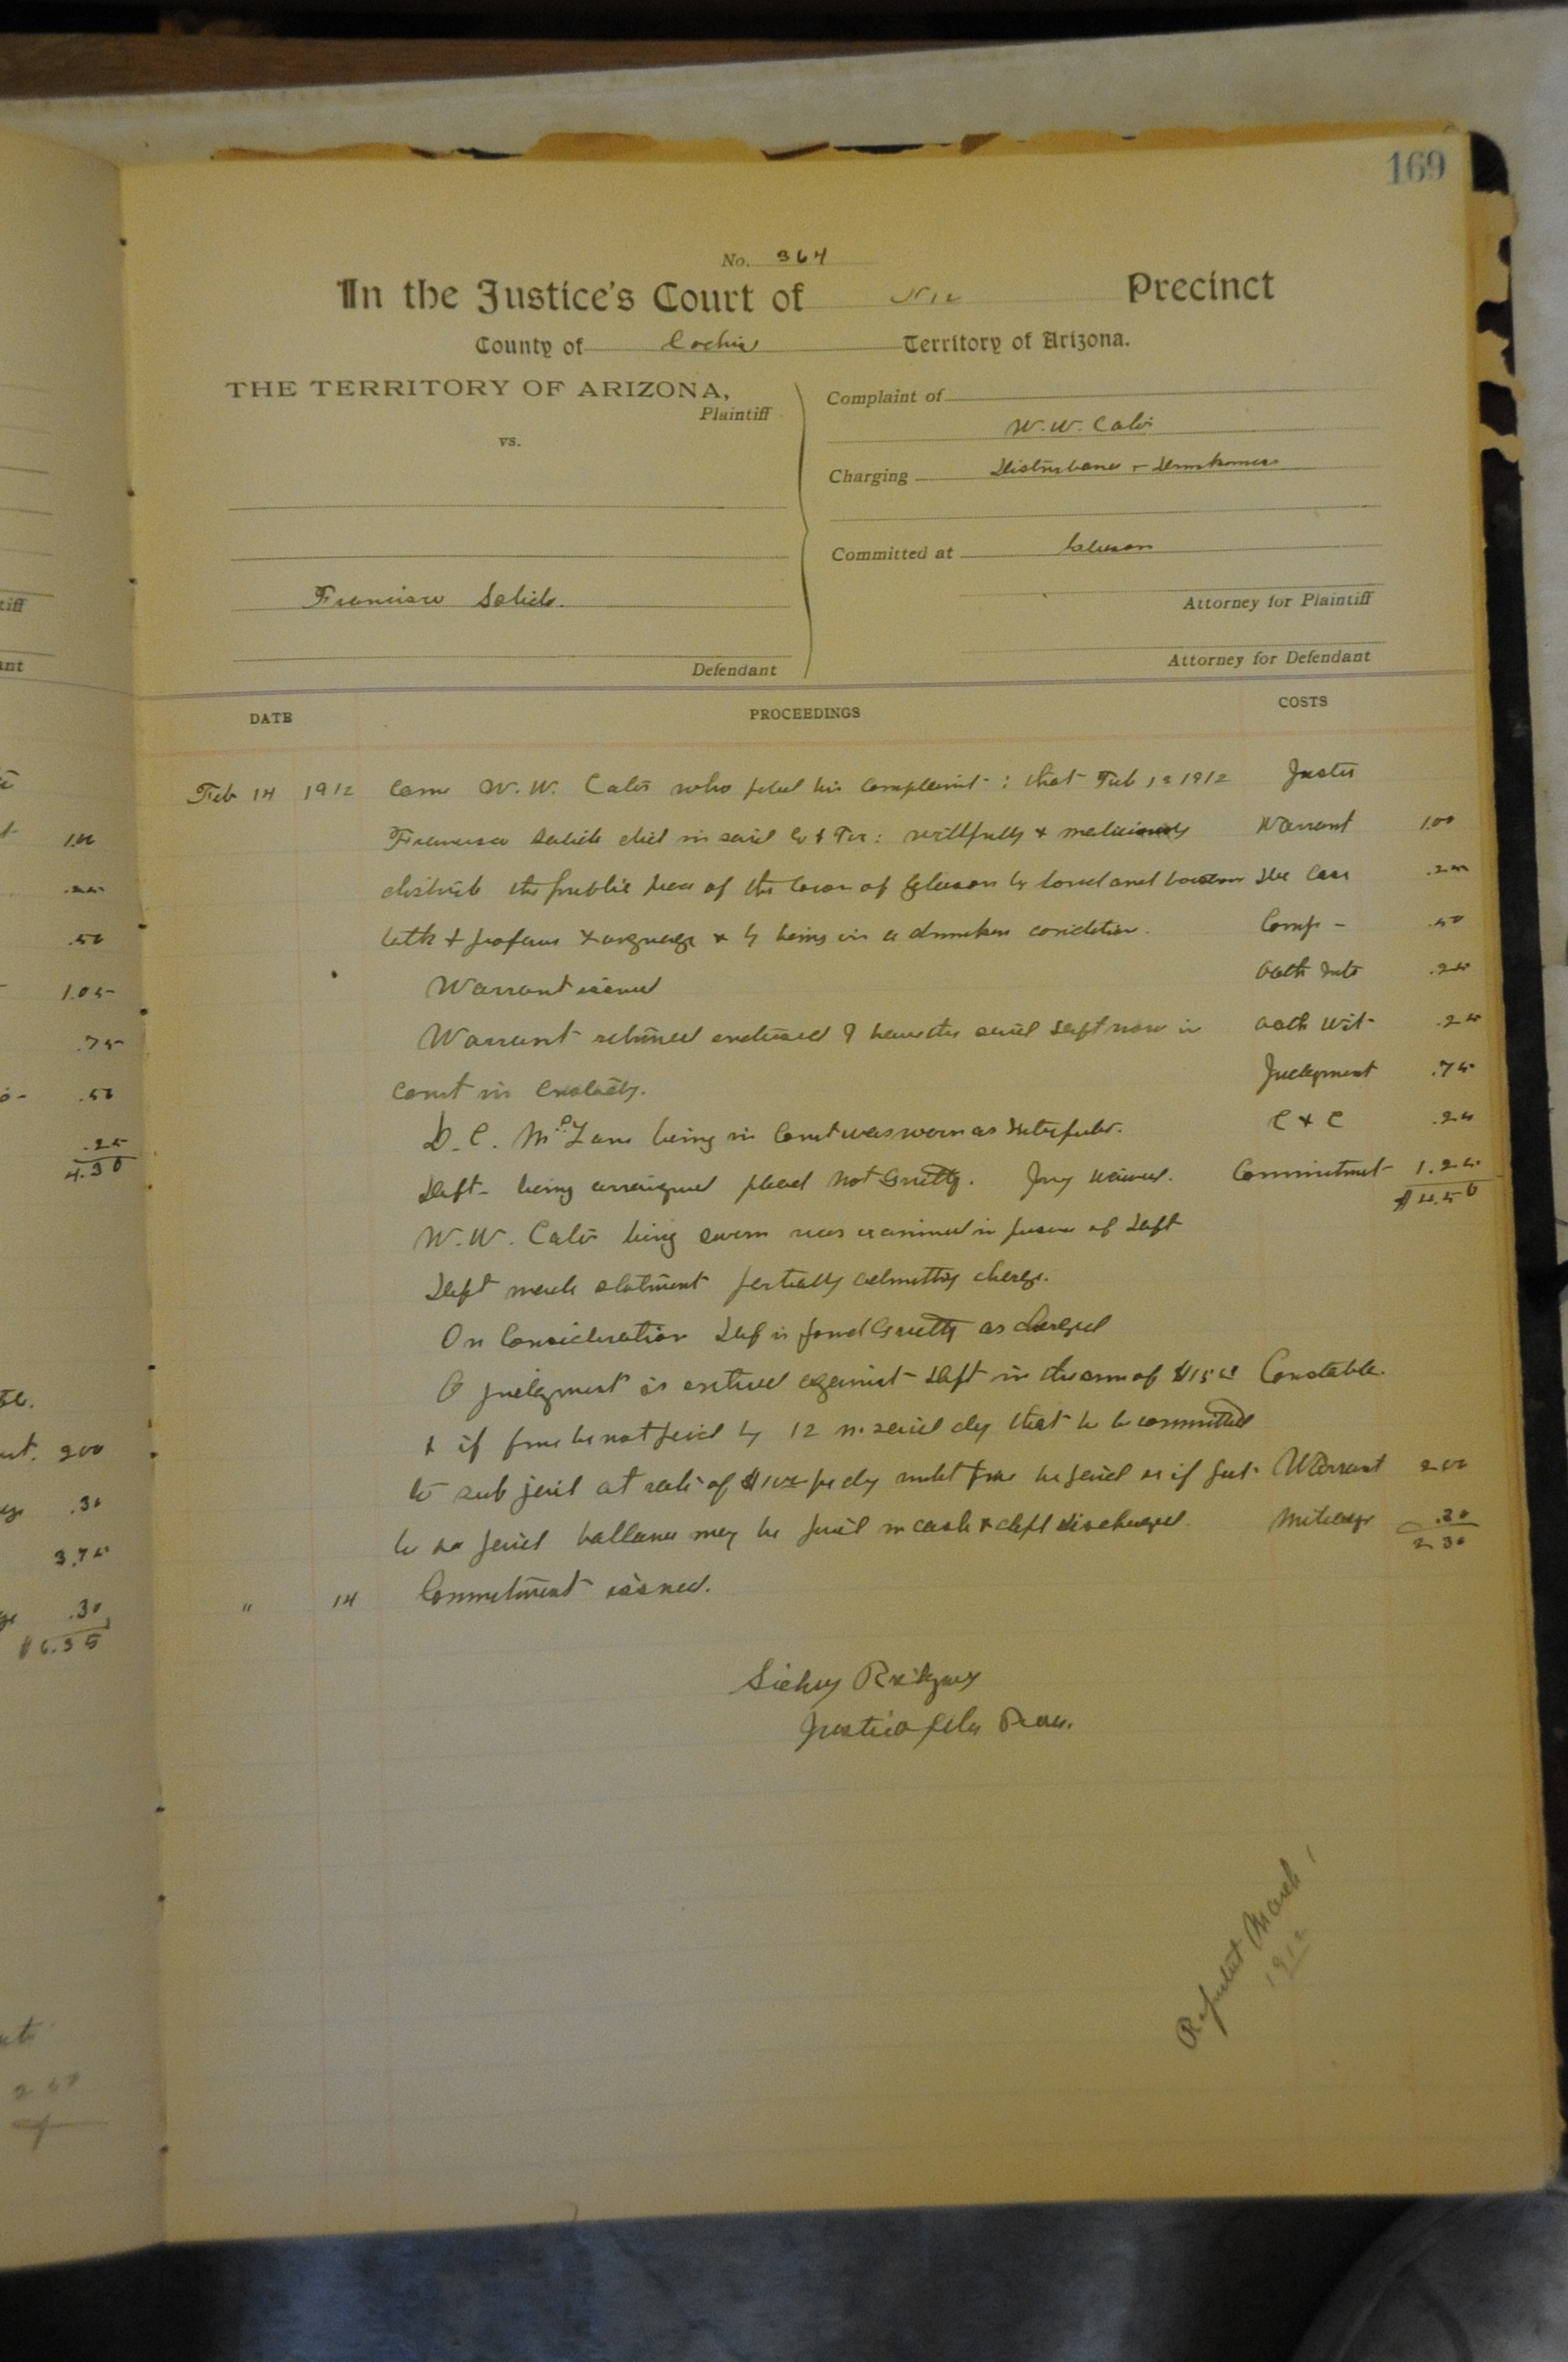 169
No. 364
In the Justice's Court of No 12 Precinct
County of Cochise Territory of Arizona.
THE TERRITORY OF ARIZONA,
Plaintiff
vs.
Francisco
Defendant
Complaint of
W. W. Cates
Charging Disturbance + Drunkenness
Committed at Gleeson
Attorney for Plaintiff
Attorney for Defendant
DATE PROCEEDINGS COSTS
Feb 14 1912 Came W. W. Cates who filed his complaint: that Feb 1912 Justice
Francisco did in said Co & Ter: willfully & maliciously Warrant 1.00
disturb the public peace of the town of Gleeson by loud and Doc Case .25
& profane language & by being in a drunken condition. Comp - .50
Warrant issued Oath Int .25
Warrant returned endorsed I have the said Deft now in Oath Wit .25
court in Custody. Judgment .75
D. C. McLane being in Court was sworn as Interpreter. C & C .25
Deft being arraigned plead Not Guilty. Jury waived. Commitment 1.25
$4.50
W. W. Cates being sworn was examined in presence of Deft
Deft made statment partially admitting charge.
On Consideration Def is found Guilty as charged
judgment is entered against Deft in the sum of $15 Constable.
& if fine be not paid by 12 m. said day that he be committed
to sub jail at rate of $1.00 per day until fine be paid or if part Warrant 2.00
be so paid ballance may be paid in cash & deft discharged. Mileage .30
2 30
" 14 Commitment issued.
Sidney
Justice of the Peace.
Reported March 1
1912
tiff
ant
.50
1.05
.75
.50
.25
4.30
200
.30
3.75
.30
$6.35